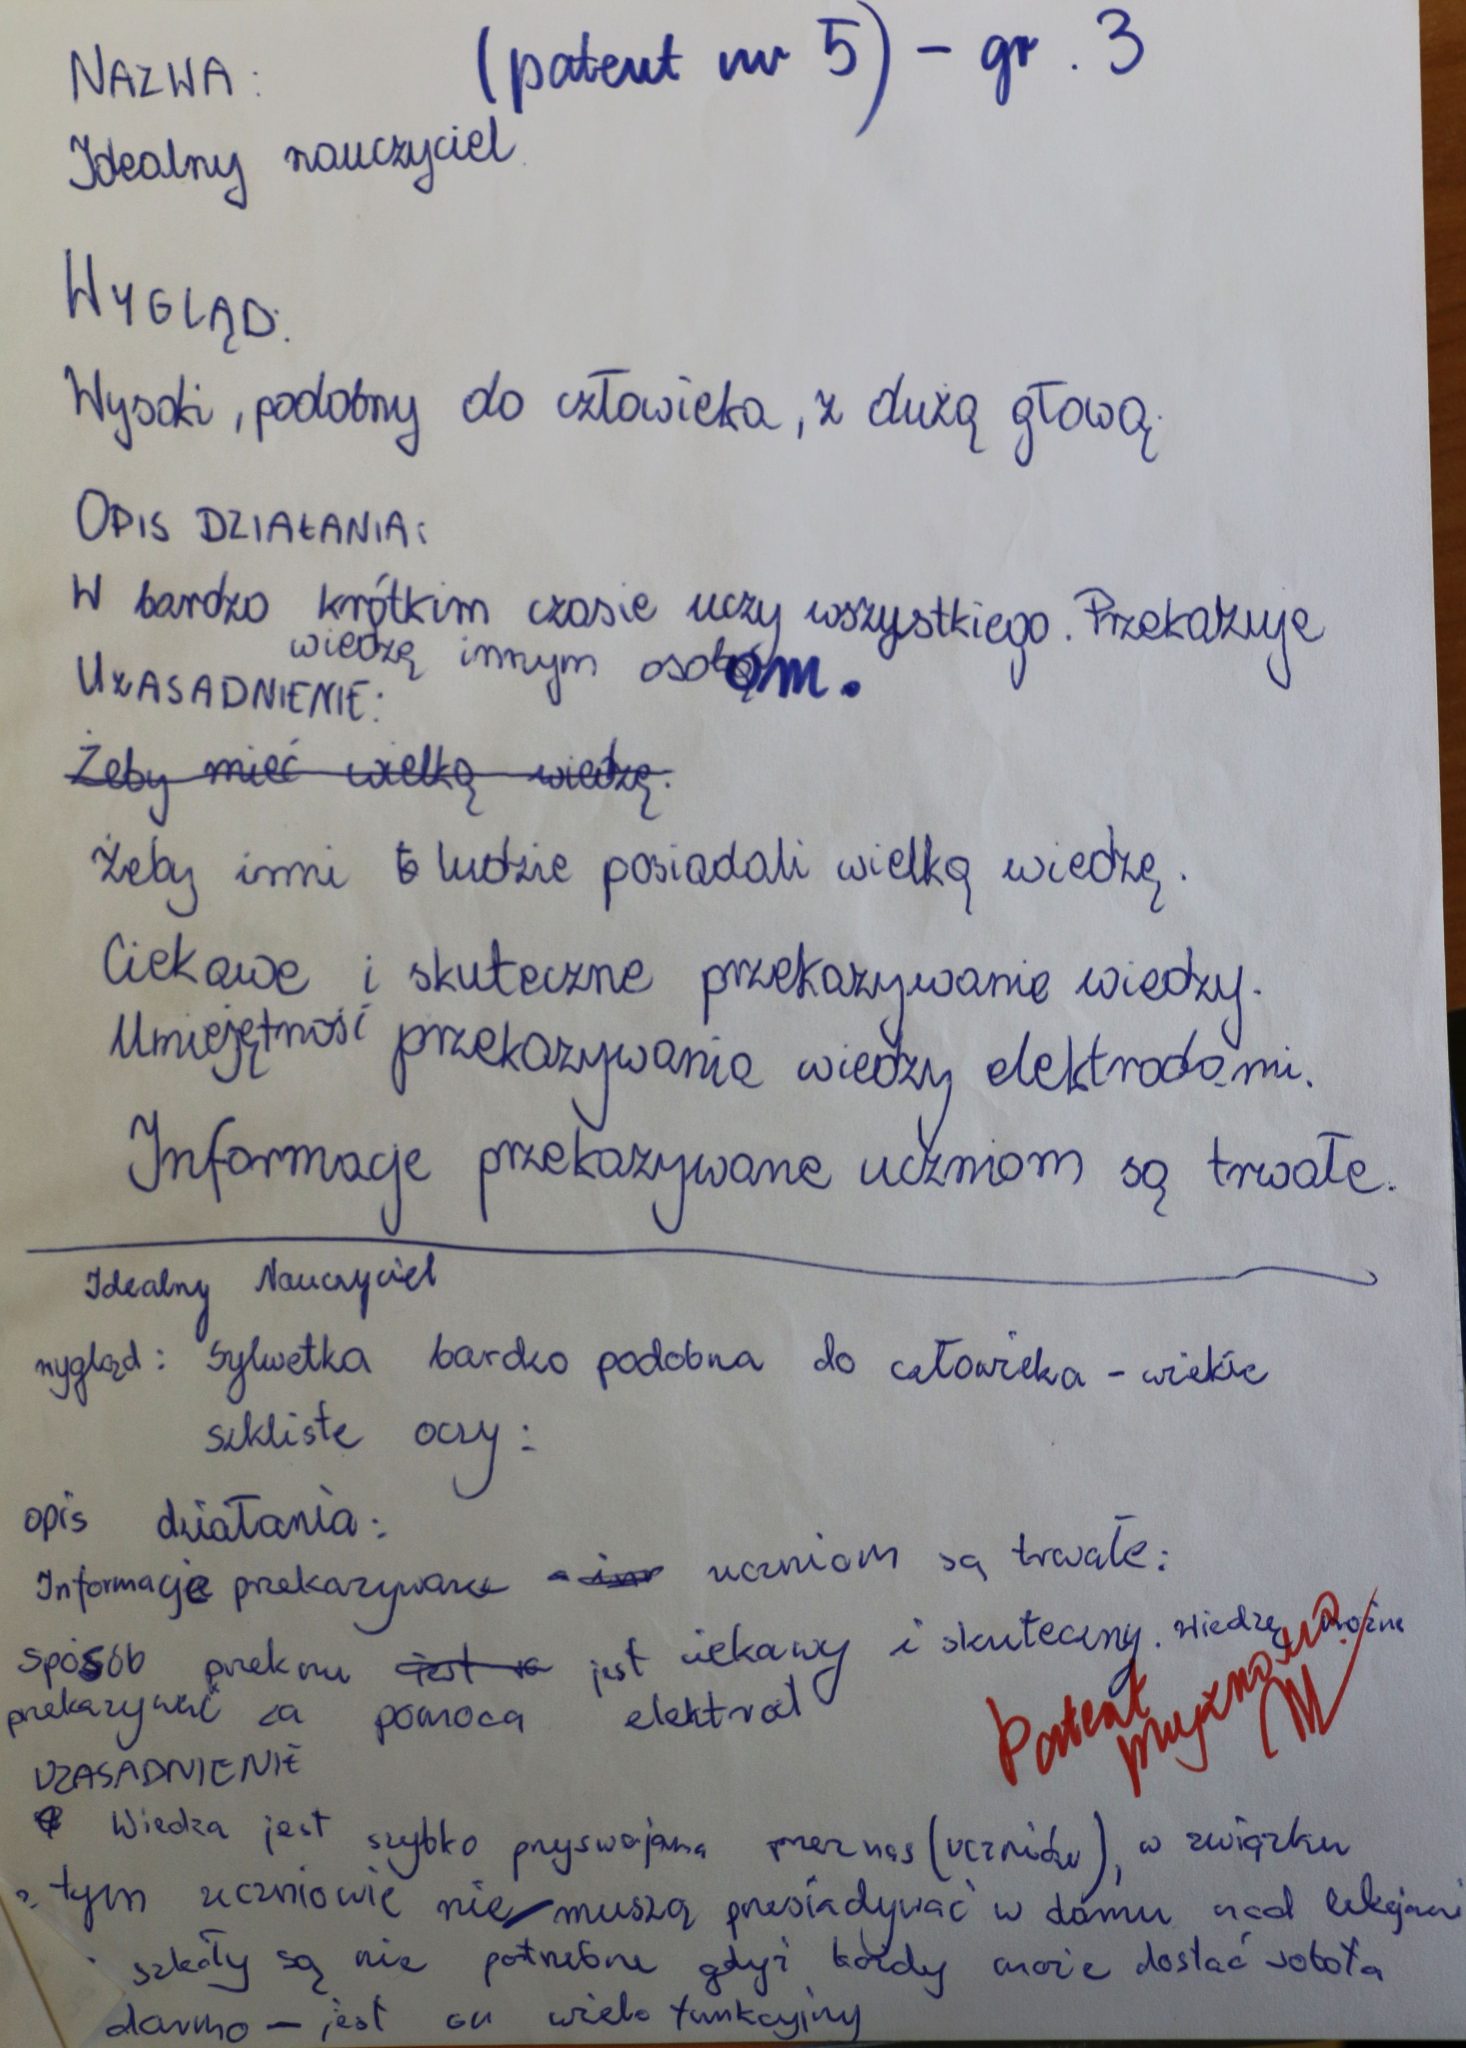 (patent nr 5) - gr. 3
NAZWA:
Idealny nauczyciel
WYGLĄD:
Wysoki, podobny do człowieka, z dużą głową.
OPIS DZIAŁANIA:
W bardzo krótkim czasie uczy wszystkiego. Przekazuje
wiedzę innym osobom.
UZASADNIENIE:
Żeby mieć wielką wiedzę.
Żeby inni ludzie posiadali wielką wiedzę.
Ciekawe i skuteczne przekazywanie wiedzy.
Umiejętność przekazywania wiedzy elektrodami.
Informacje przekazywane uczniom są trwałe.
Idealny Nauczyciel
wygląd: Sylwetka bardzo podobna do człowieka - wiekie
szkliste oczy:
opis działania:
Informacje przekazywane uczniom są trwałe:
sposób przekazu jest ciekawy i skuteczny. Wiedzę można
przekazywać za pomocą elektrod
Patent przyznano
UZASADNIENIE
Wiedza jest szybko przyswajana przez nas (uczniów), w związku
z tym uczniowie nie muszą przesiadywać w domu nad lekcjami
szkoły są nie potrzebne gdyż każdy może dostać robota
darmo - jest on wielofunkcyjny